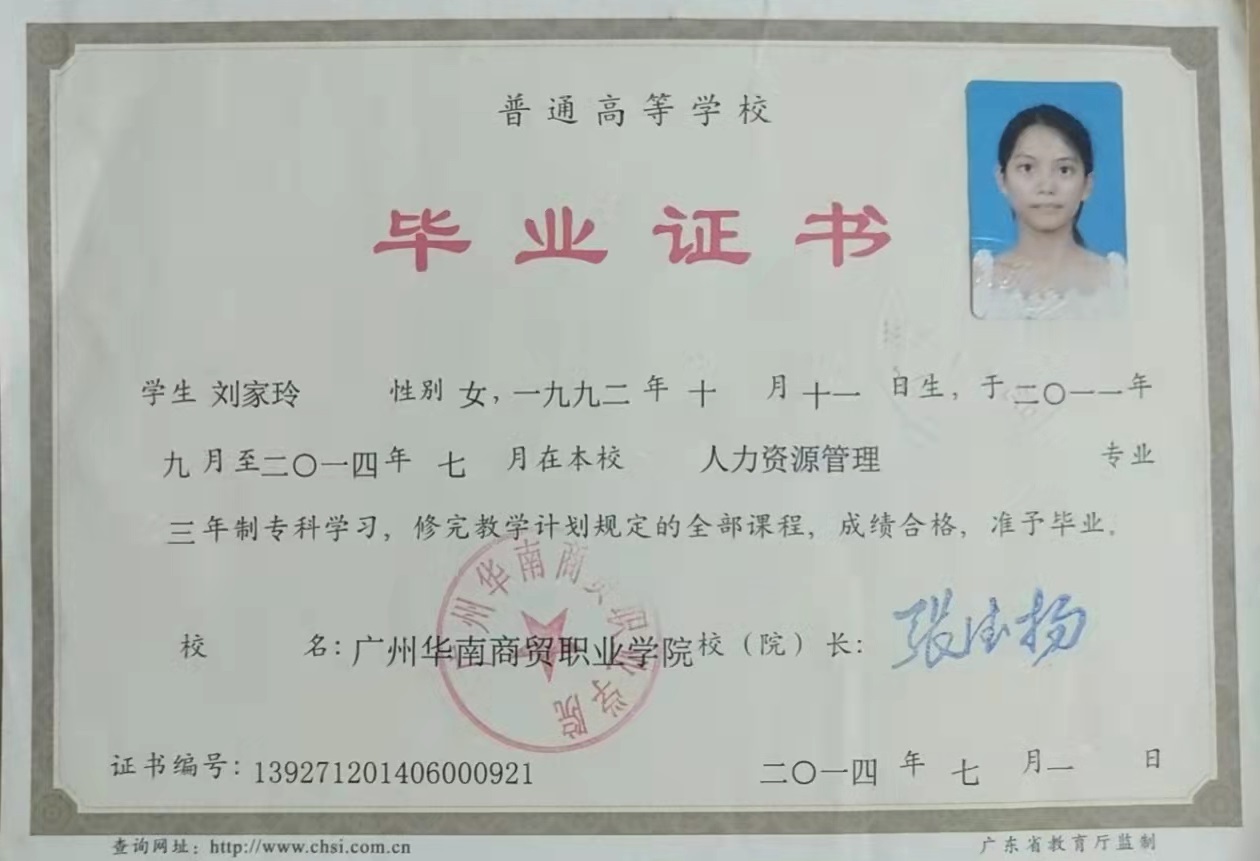 普通高等学校
毕业证书
学生 刘家玲 性别 女，一九九二 年 十 月 十一 日生，于二〇一一年
九 月至二〇一四年 七 月在本校 人力资源管理 专业
三年制专科学习，修完教学计划规定的全部课程，成绩合格，准予毕业。
广州华南商贸职业学院
校 名：广州华南商贸职业学院 校（院）长：
证书编号：139271201406000921 二〇一四 年 七 月一 日
查询网址：http://www.chsi.com.cn 广东省教育厅监制